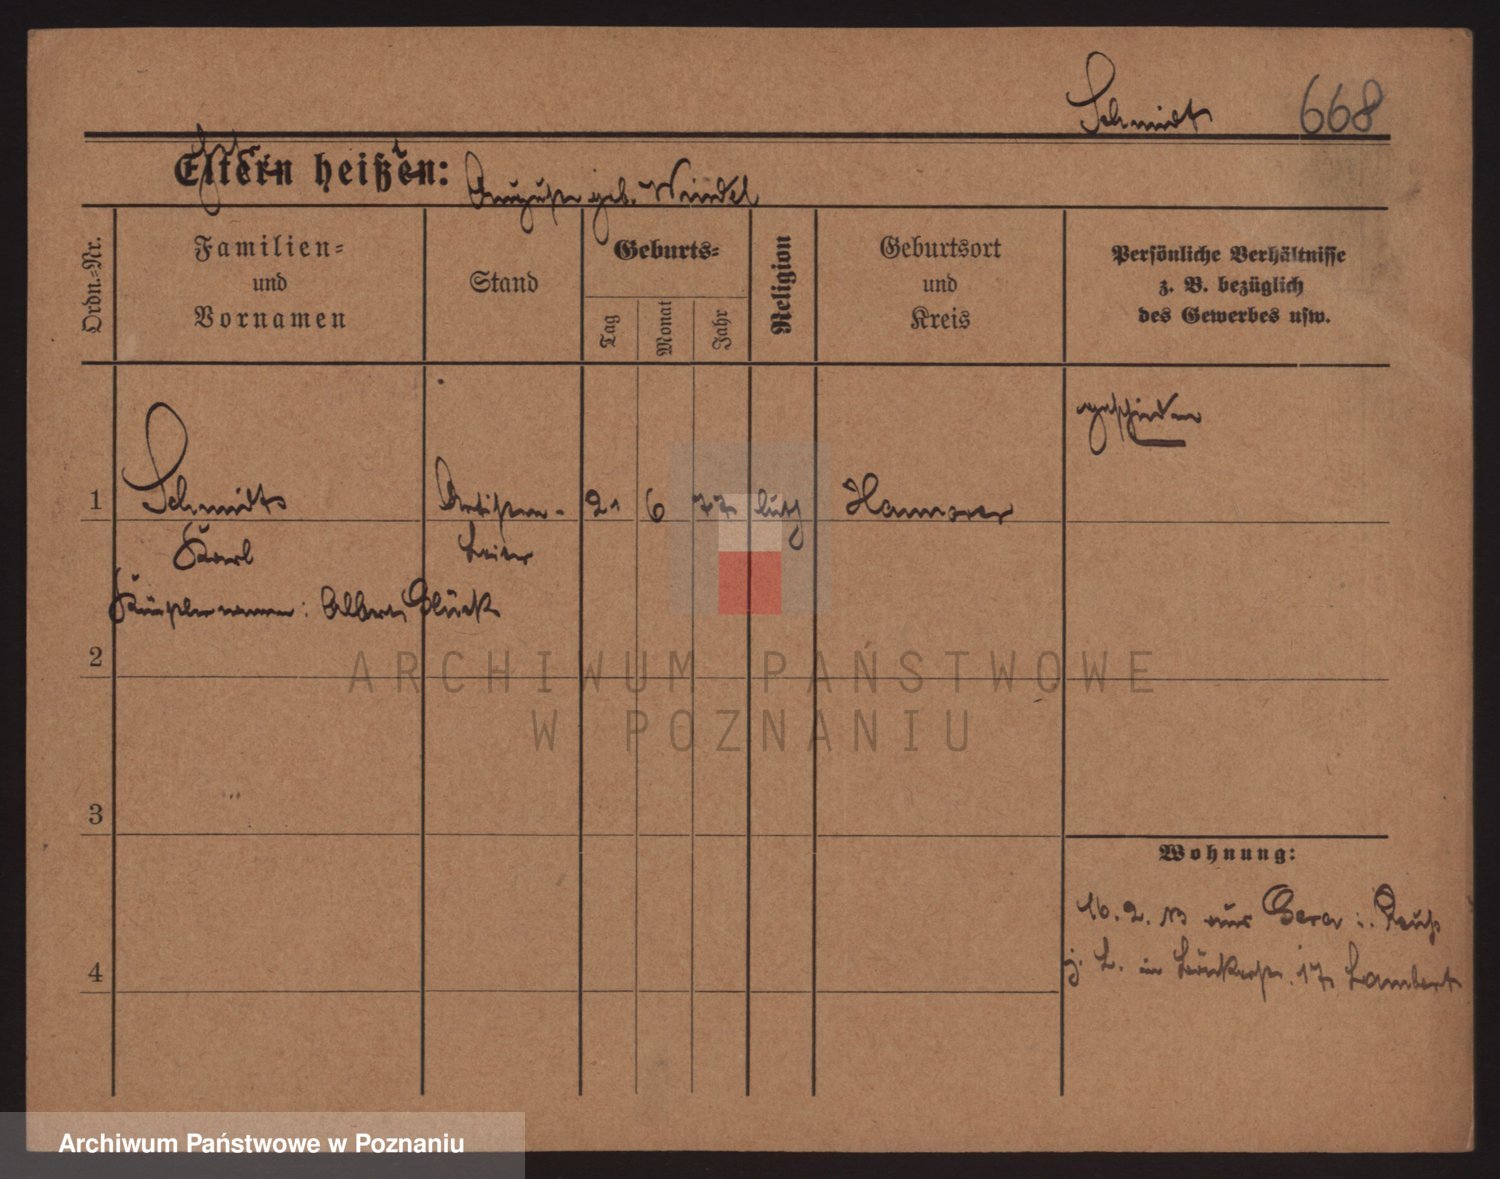 Schmidt 668
Eltern heißen:
Auguste geb. Windel
Ordn.-Nr.
Familien-
und
Vornamen
Stand
Geburts-
Tag
Monat
Jahr
Religion
Geburtsort
und
Kreis
Persönliche Verhältnisse
z. B. bezüglich
des Gewerbes usw.
geschieden
1 Schmidt Artisten- 21 6 77 luth Hannover
Karl Leiter
Künstlername: Albert Glück
2
ARCHIWUM PAŃSTWOWE
W POZNANIU
3
Wohnung:
16. 2. 13 aus Gera i. Reuß
4
z. L. in 17 Lambert
Archiwum Państwowe w Poznaniu